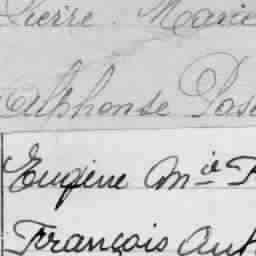 Pierre Marie
Alphonse Pas
Eugène Mie F
François Ant